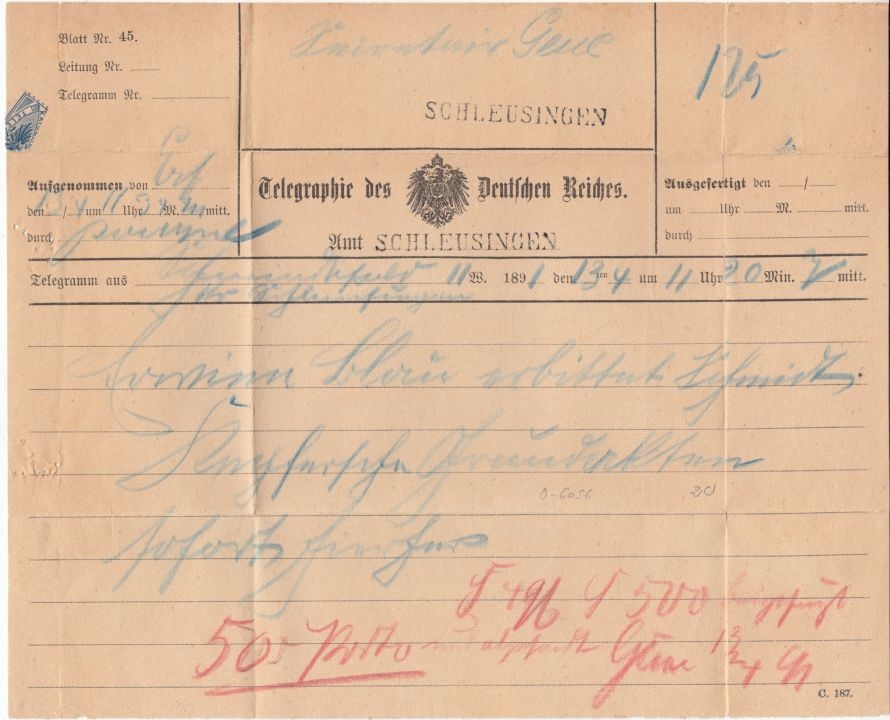 Blatt Nr. 45.
Leitung Nr.
Telegramm Nr.
Secretair Gene
SCHLEUSINGEN
125
Aufgenommen von Erf
den 13/4 um 11 Uhr 34 M. mitt.
durch
Telegraphie des Deutschen Reiches.
Amt SCHLEUSINGEN
Ausgefertigt den /
um Uhr M. mitt.
durch
Telegramm aus Schmiedefeld 11 W. 1891 den 13ten 4 um 11 Uhr 20 Min. V mitt.
Kr Schleusingen
Erwien Blau erbittet Schmidt
Kupfersche Grundakten
sofort hierher
0-6056
20
500 Porto
Gene 13/4 91
C. 187.